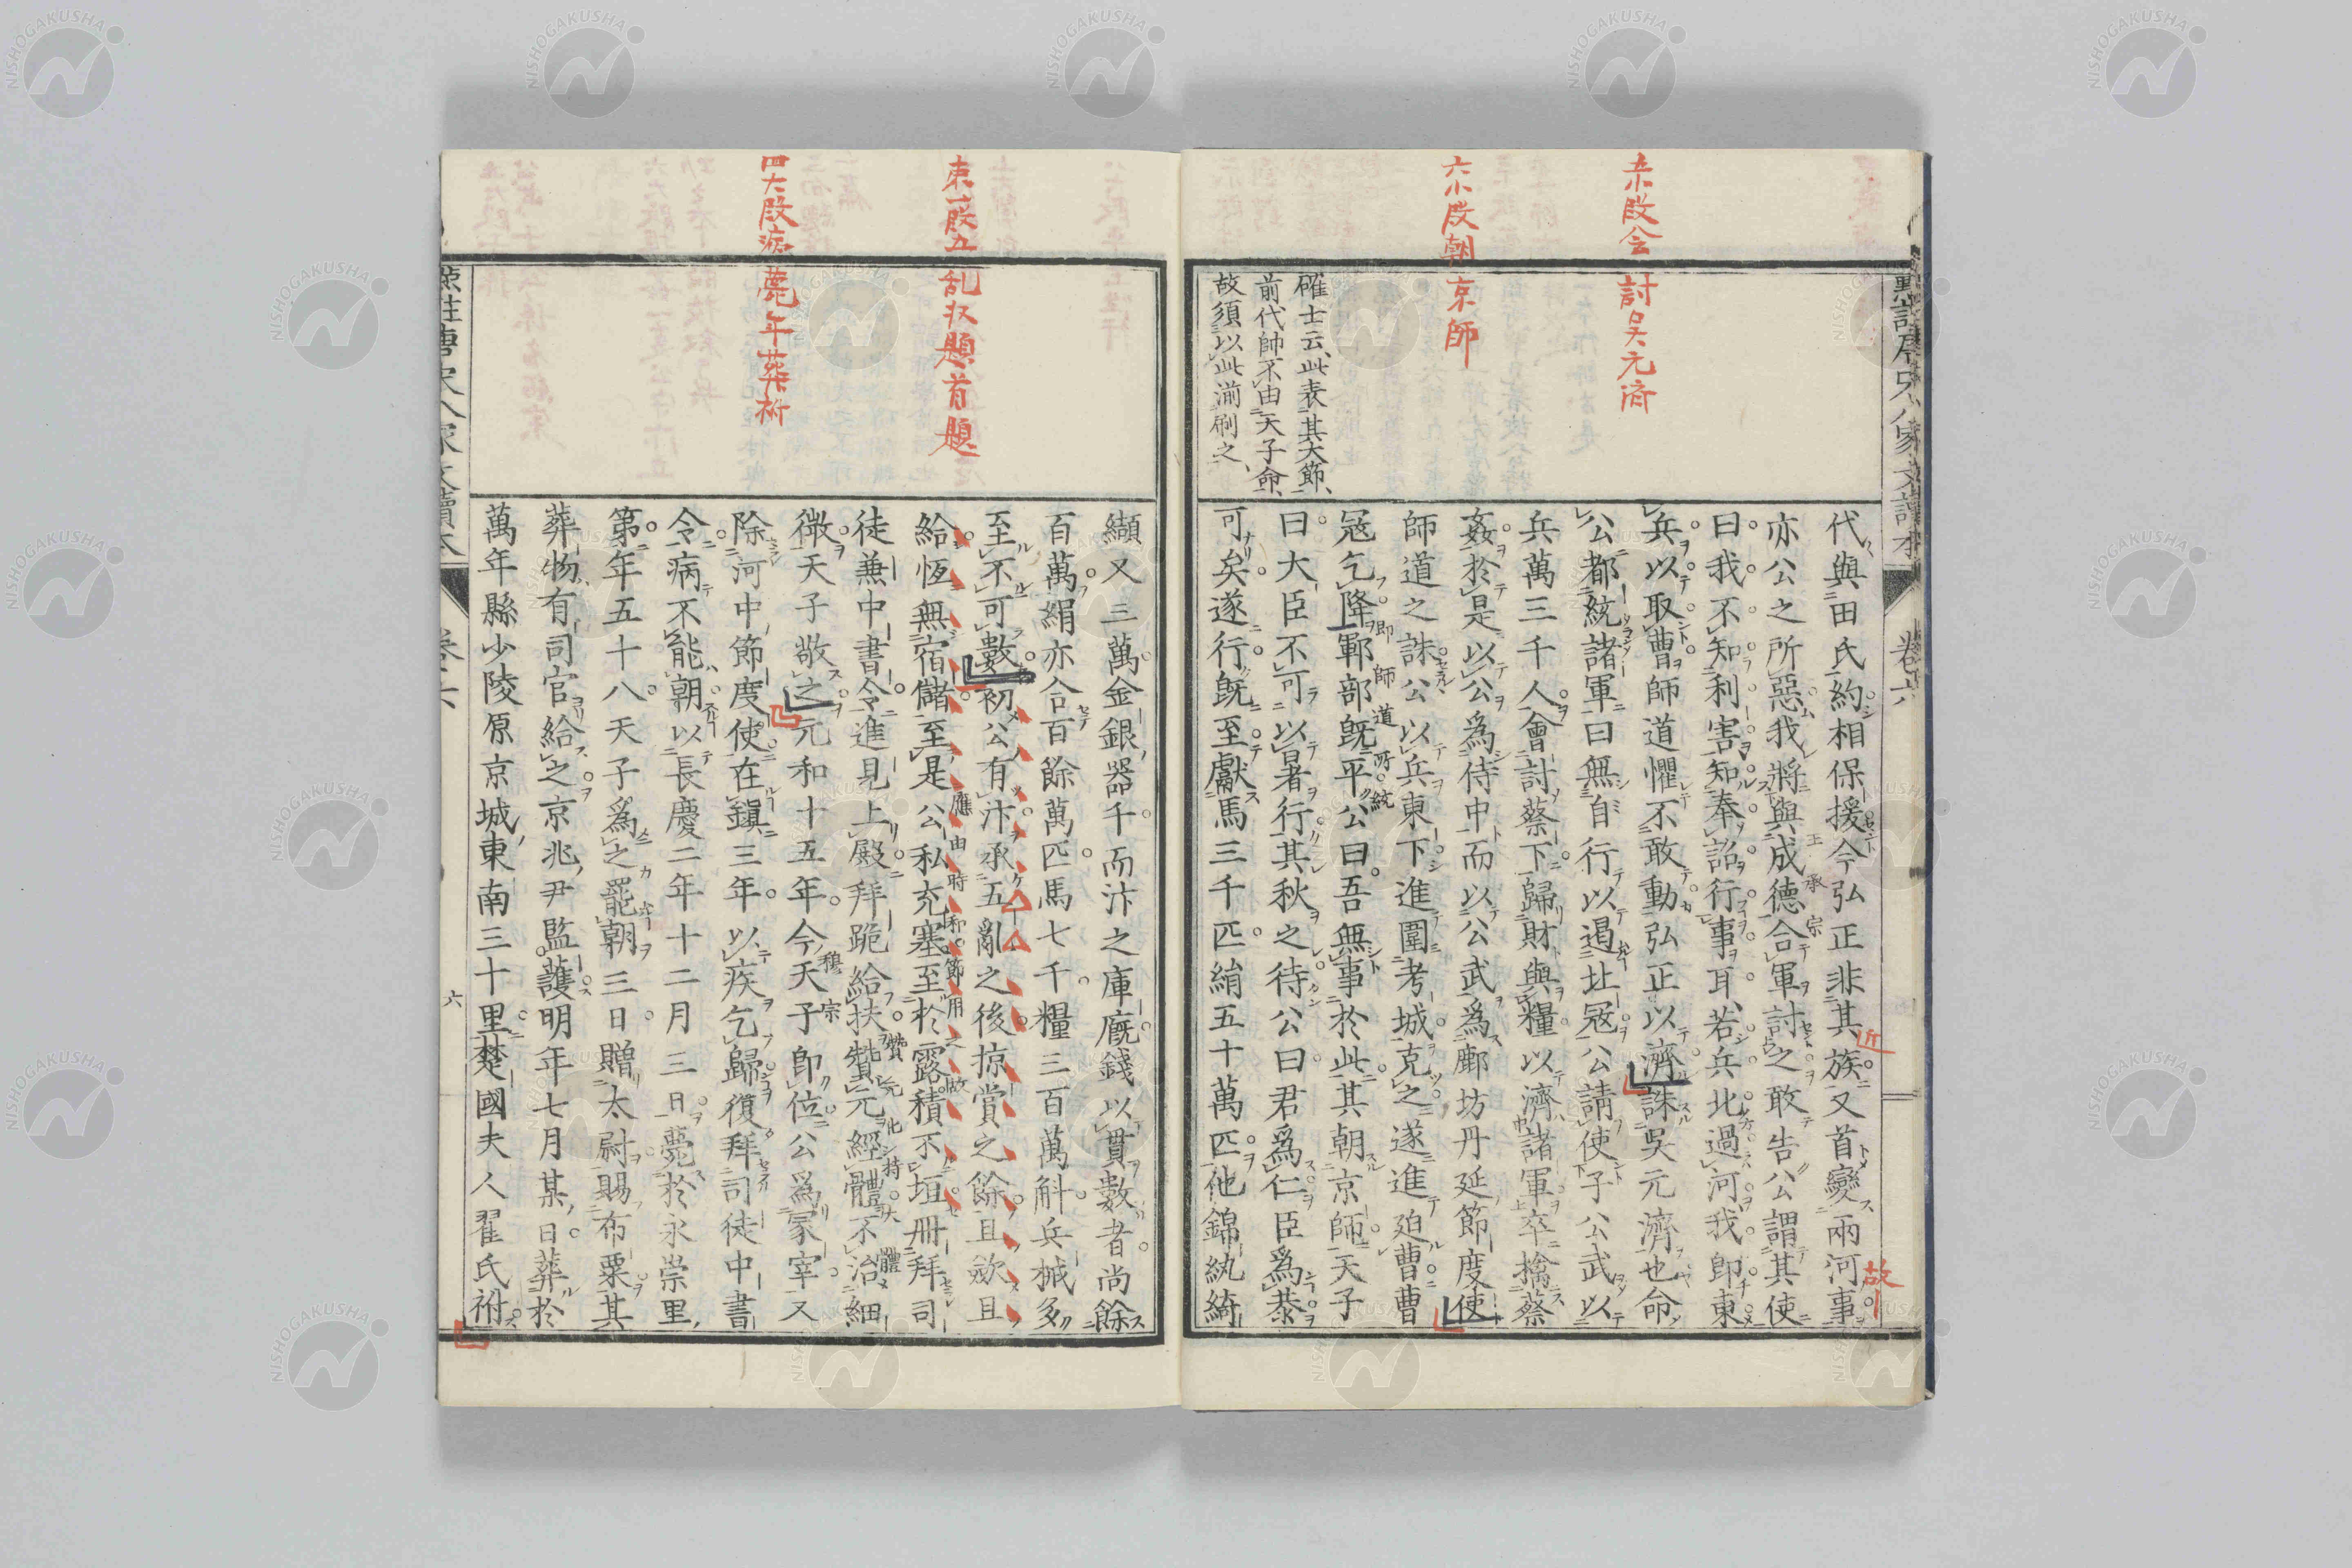 五小段会討吳元済
六小段朝京師
確士云、此表其大節、
前代帥不由天子命、
故須以此湔刷之、
代與田氏約相保援今弘正非其族又首變兩河事
亦公之所惡我將與成德合軍討之敢告公謂其使
曰我不知利害知奉詔行事耳若兵北過河我卽東
兵以取曹師道懼不敢動弘正以濟誅吳元濟也命
公都統諸軍曰無自行以遏北寇公請使子公武以
兵萬三千人會討蔡下歸財與糧以濟諸軍卒擒蔡
姦於是以公爲侍中而以公武爲鄜坊丹延節度使
師道之誅公以兵東下進圍考城克之遂進廹曹曹
寇乞降鄆部旣平公曰吾無事於此其朝京師天子
曰大臣不可以暑行其秋之待公曰君爲仁臣爲恭
可矣遂行旣至獻馬三千匹絹五十萬匹他錦紈綺
卷六
束一段五乱収題首題
四大段病薨年葬祔
纈又三萬金銀器千而汴之庫廐錢以貫數者尚餘
百萬絹亦合百餘萬匹馬七千糧三百萬斛兵械多
至不可數初公有汴承五亂之後掠賞之餘且歛且
給恆無宿儲至是公私充塞至於露積不垣冊拜司
徒兼中書令進見上殿拜跪給扶贊元經體不治細
微天子敬之元和十五年今天子卽位公爲冢宰又
除河中節度使在鎭三年以疾乞歸復拜司徒中書
令病不能朝以長慶二年十二月三日薨於永崇里
第年五十八天子爲之罷朝三日贈太尉賜布粟其
葬物有司官給之京兆尹監護明年七月某日葬於
萬年縣少陵原京城東南三十里楚國夫人翟氏祔
六
NISHOGAKUSHA